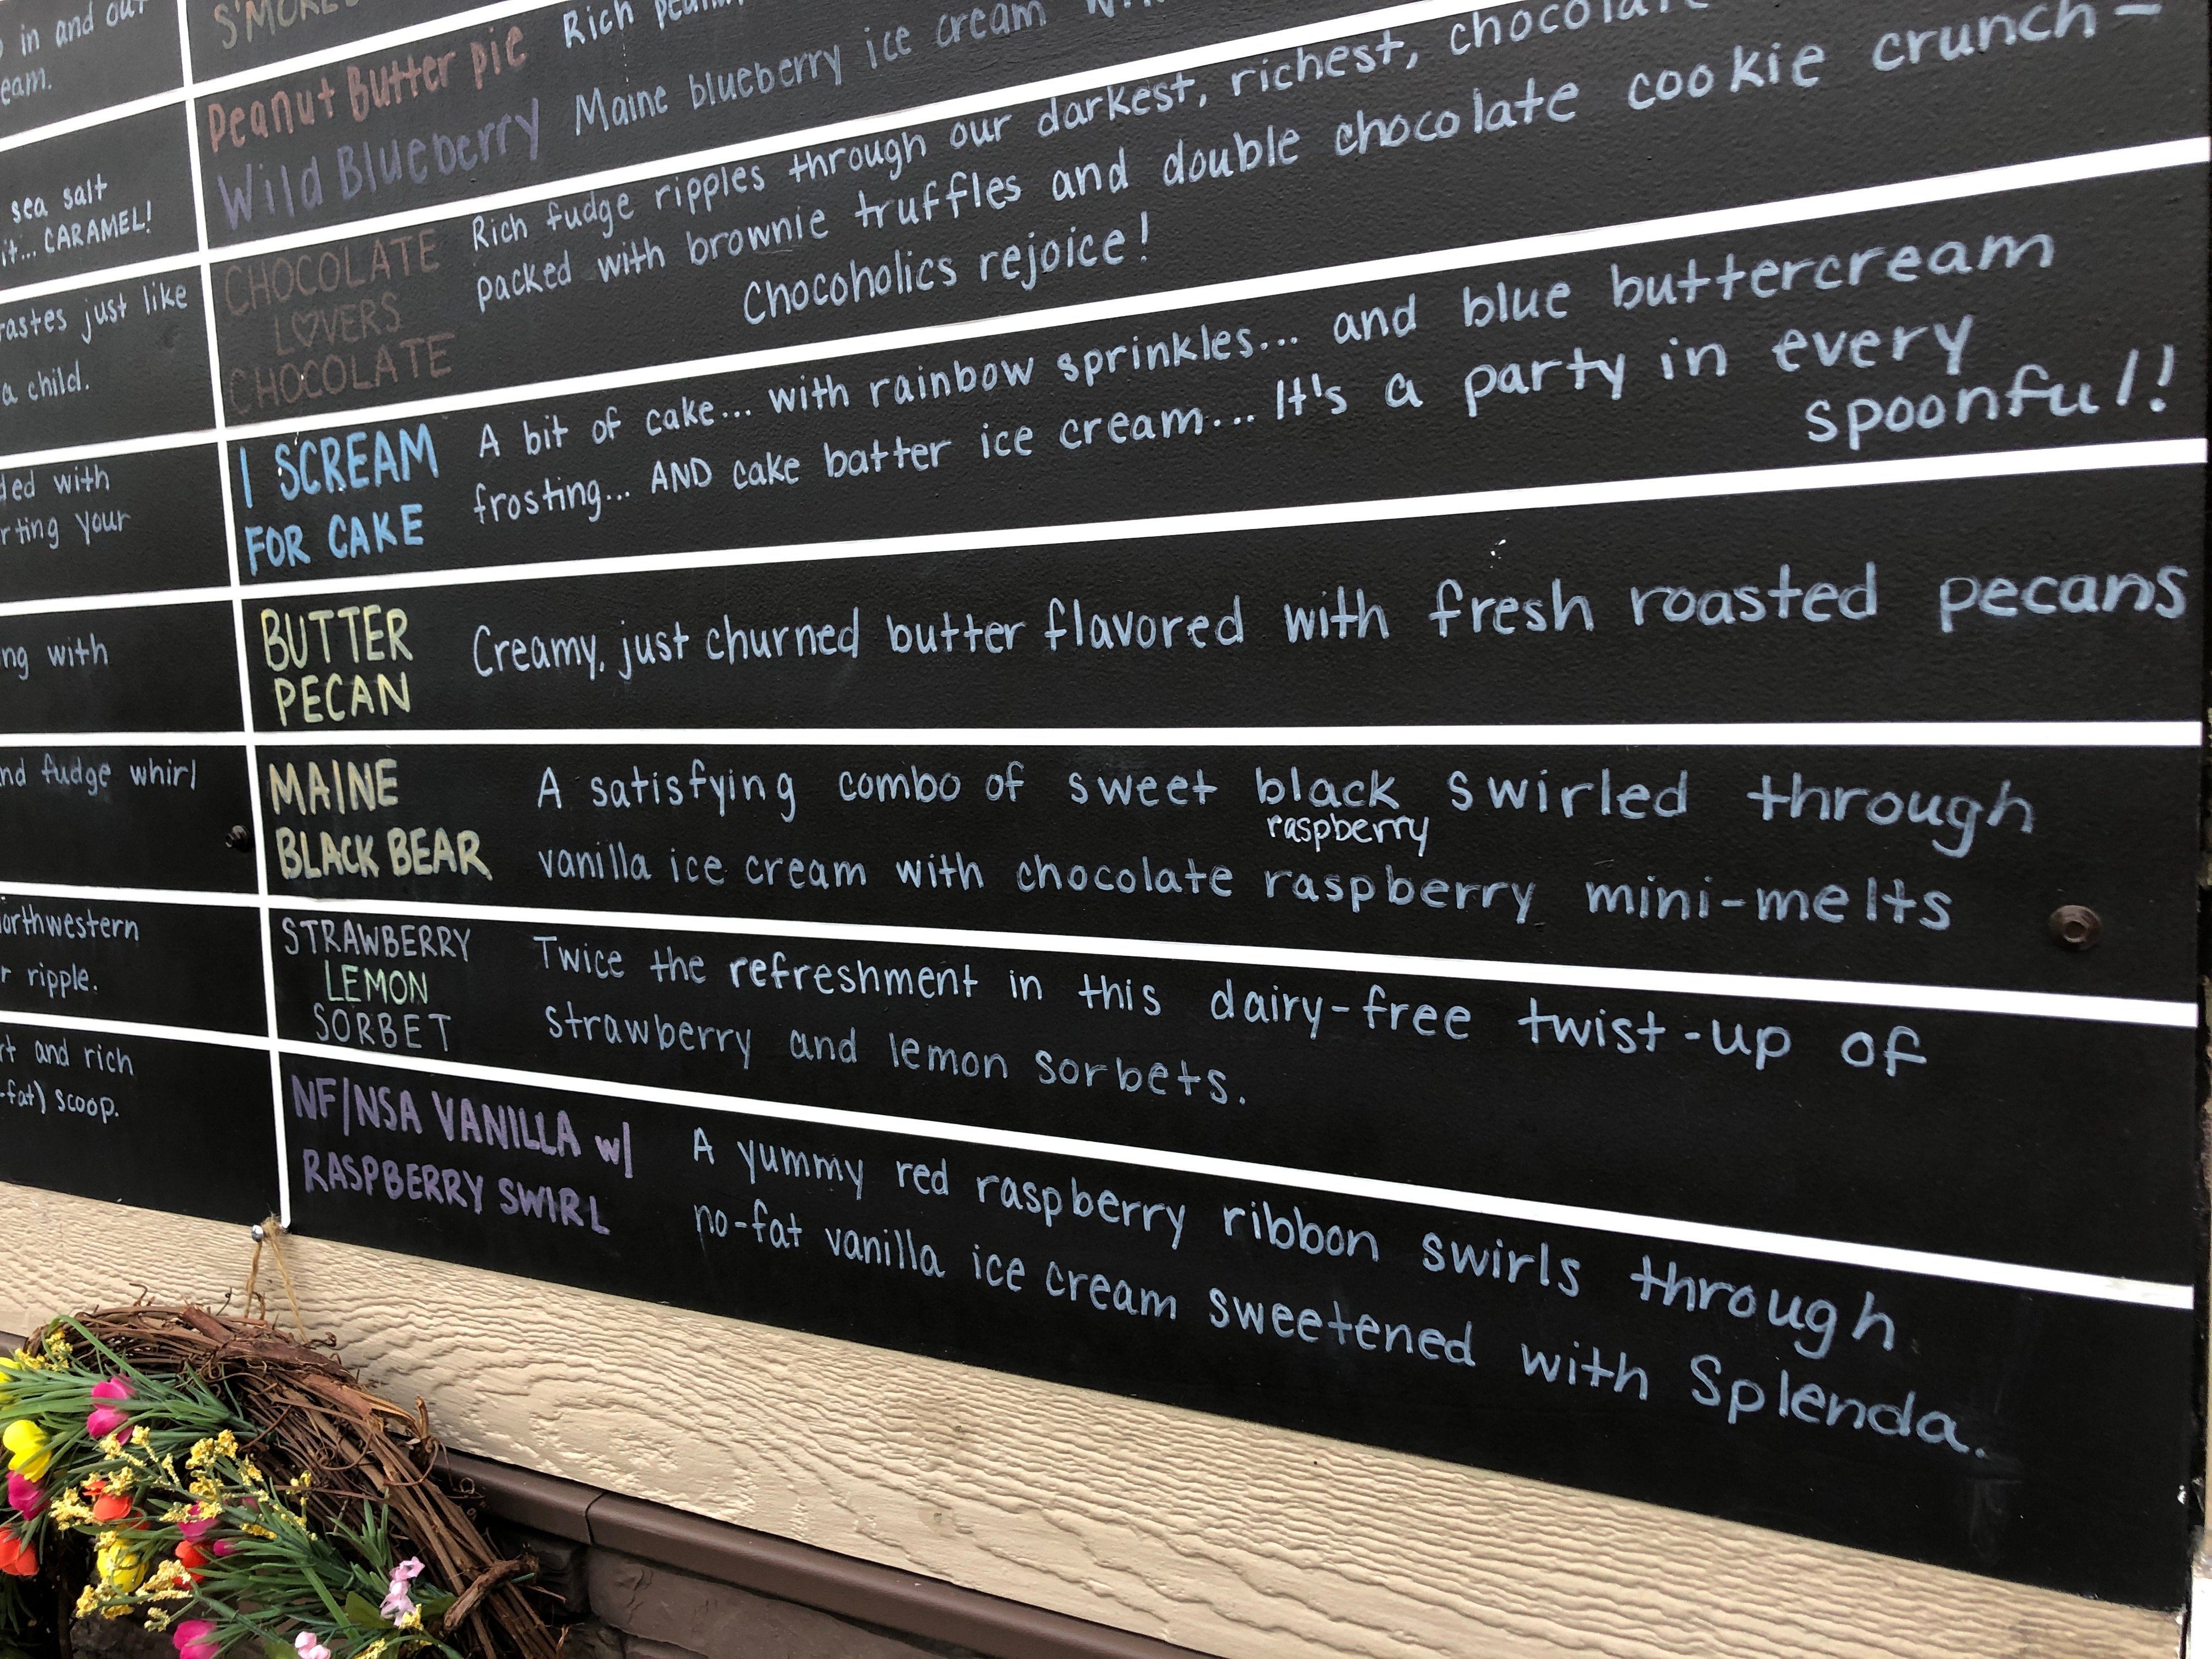 in and out
eam.
sea salt
it... CARAMEL!
tastes just like
a child.
ded with
rting your
ng with
nd fudge whirl
orthwestern
r ripple.
rt and rich
-fat) scoop.
S'MORES
Peanut Butter pie Rich
Wild Blueberry Maine blueberry ice cream
CHOCOLATE
LOVERS
CHOCOLATE
Rich fudge ripples through our darkest, richest, chocolate
packed with brownie truffles and double chocolate cookie crunch-
Chocoholics rejoice!
I SCREAM
FOR CAKE
A bit of cake... with rainbow sprinkles... and blue buttercream
frosting... AND cake batter ice cream... It's a party in every
spoonful!
BUTTER
PECAN
Creamy, just churned butter flavored with fresh roasted pecans
MAINE
BLACK BEAR
A satisfying combo of sweet black swirled through
raspberry
vanilla ice cream with chocolate raspberry mini-melts
STRAWBERRY
LEMON
SORBET
Twice the refreshment in this dairy-free twist-up of
strawberry and lemon sorbets.
NF/NSA VANILLA w/
RASPBERRY SWIRL
A yummy red raspberry ribbon swirls through
no-fat vanilla ice cream sweetened with Splenda.